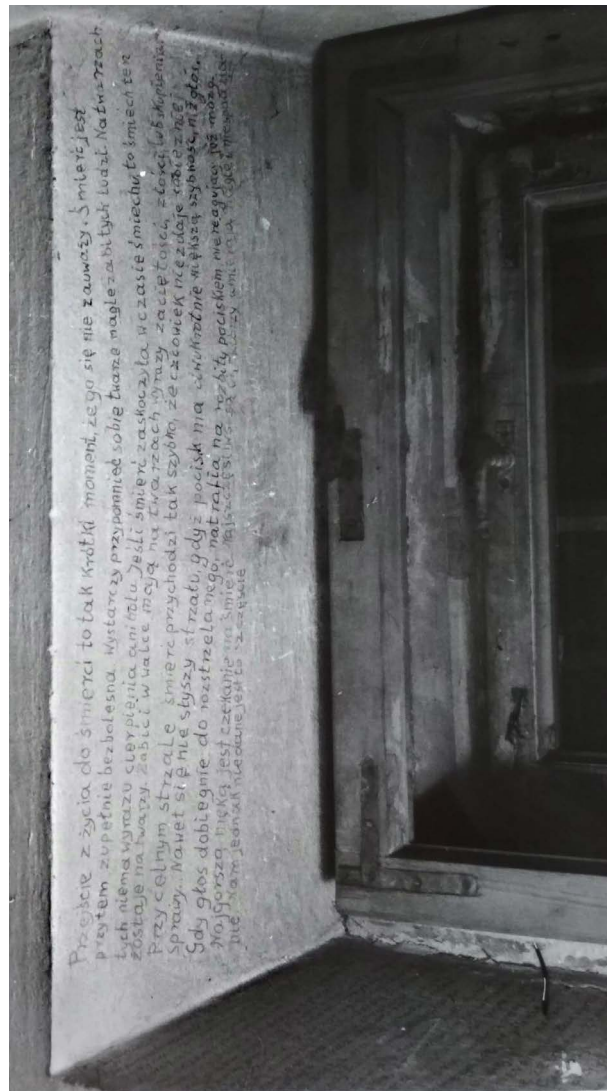 Przejście z życia do śmierci to tak krótki moment, że go się nie zauważy. Śmierć jest
przytem zupełnie bezbolesna. Wystarczy przypomnieć sobie twarze nagle zabitych ludzi. Na twarzach
tych niema wyrazu cierpienia ani bólu. Jeśli śmierć zaskoczyła w czasie śmiechu, to śmiech ten
zostaje na twarzy. Zabici w walce mają na twarzach wyrazy zaciętości, złości lub skupienia.
Przy celnym strzale śmierć przychodzi tak szybko, że człowiek nie zdaje sobie z niej
sprawy. Nawet się nie słyszy strzału, gdyż pocisk ma dwukrotnie większą szybkość, niż głos.
Gdy głos dobiegnie do rozstrzelanego, natrafia na rozbity pociskiem nie reagujący już mózg.
Najgorszą męką jest czekanie na śmierć. Najszczęśliwsi są ci, którzy umierają nagle i niespodzia-
nie. Nam jednak nie dane jest to szczęście